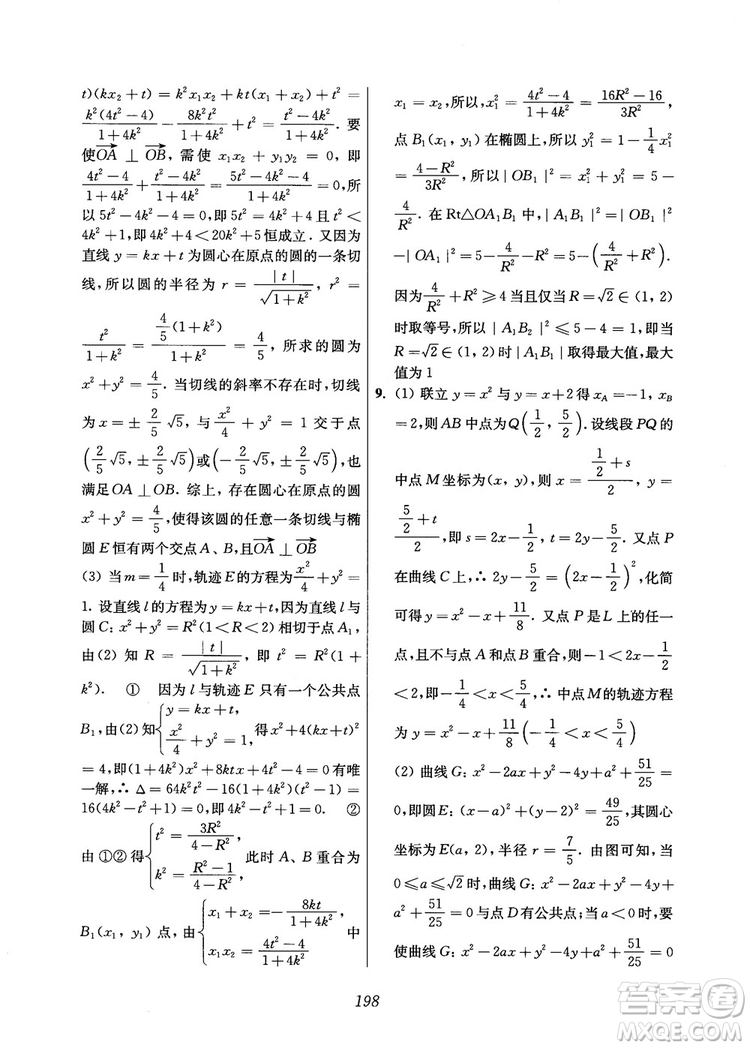 t)(kx₂+t)=k²x₁x₂+kt(x₁+x₂)+t²=
\frac{k²(4t²-4)}{1+4k²}-\frac{8k²t²}{1+4k²}+t²=\frac{t²-4k²}{1+4k²}. 要
使\overrightarrow{OA}⊥\overrightarrow{OB}, 需使 x₁x₂+y₁y₂=0, 即
\frac{4t²-4}{1+4k²}+\frac{t²-4k²}{1+4k²}=\frac{5t²-4k²-4}{1+4k²}=0,所
以 5t²-4k²-4=0,即 5t²=4k²+4 且 t²<
4k²+1, 即 4k²+4<20k²+5 恒成立. 又因为
直线 y=kx+t 为圆心在原点的圆的一条切
线, 所以圆的半径为 r=\frac{|t|}{\sqrt{1+k²}}, r²=
\frac{t²}{1+k²}=\frac{\frac{4}{5}(1+k²)}{1+k²}=\frac{4}{5}, 所求的圆为
x²+y²=\frac{4}{5}. 当切线的斜率不存在时,切线
为 x=±\frac{2}{5}\sqrt{5}, 与\frac{x²}{4}+y²=1 交于点
(\frac{2}{5}\sqrt{5}, ±\frac{2}{5}\sqrt{5})或(-\frac{2}{5}\sqrt{5}, ±\frac{2}{5}\sqrt{5}),也
满足 OA⊥OB. 综上, 存在圆心在原点的圆
x²+y²=\frac{4}{5},使得该圆的任意一条切线与椭
圆 E 恒有两个交点 A、B,且\overrightarrow{OA}⊥\overrightarrow{OB}
(3) 当 m=\frac{1}{4}时,轨迹 E 的方程为\frac{x²}{4}+y²=
1. 设直线 l 的方程为 y=kx+t,因为直线 l 与
圆 C: x²+y²=R²(1<R<2)相切于点 A₁,
由(2) 知 R=\frac{|t|}{\sqrt{1+k²}}, 即 t²=R²(1+
k²). ① 因为 l 与轨迹 E 只有一个公共点
B₁,由(2)知\begin{cases}y=kx+t,\\\frac{x²}{4}+y²=1,\end{cases}得 x²+4(kx+t)²
=4,即(1+4k²)x²+8ktx+4t²-4=0 有唯
一解,∴ Δ=64k²t²-16(1+4k²)(t²-1)=
16(4k²-t²+1)=0,即 4k²-t²+1=0. ②
由 ①②得\begin{cases}t²=\frac{3R²}{4-R²},\\k²=\frac{R²-1}{4-R²},\end{cases} 此时 A、B 重合为
B₁(x₁, y₁) 点, 由\begin{cases}x₁+x₂=-\frac{8kt}{1+4k²},\\x₁x₂=\frac{4t²-4}{1+4k²}\end{cases} 中
x₁=x₂,所以, x₁²=\frac{4t²-4}{1+4k²}=\frac{16R²-16}{3R²},
点 B₁(x₁, y₁)在椭圆上,所以 y₁²=1-\frac{1}{4}x₁²
=\frac{4-R²}{3R²}, 所以|OB₁|²=x₁²+y₁²=5-
\frac{4}{R²}. 在 Rt△OA₁B₁ 中, |A₁B₁|²=|OB₁|²
-|OA₁|²=5-\frac{4}{R²}-R²=5-(\frac{4}{R²}+R²).
因为\frac{4}{R²}+R²≥4 当且仅当 R=\sqrt{2}∈(1, 2)
时取等号,所以|A₁B₂|²≤5-4=1,即当
R=\sqrt{2}∈(1, 2)时|A₁B₁|取得最大值,最大
值为 1
9. (1) 联立 y=x² 与 y=x+2 得 x_A=-1, x_B
=2,则 AB 中点为 Q(\frac{1}{2}, \frac{5}{2}). 设线段 PQ 的
中点 M 坐标为(x, y),则 x=\frac{\frac{1}{2}+s}{2}, y=
\frac{\frac{5}{2}+t}{2}, 即 s=2x-\frac{1}{2}, t=2y-\frac{5}{2}. 又点 P
在曲线 C 上,∴ 2y-\frac{5}{2}=(2x-\frac{1}{2})²,化简
可得 y=x²-x+\frac{11}{8}. 又点 P 是 L 上的任一
点,且不与点 A 和点 B 重合,则 -1<2x-\frac{1}{2}
<2,即-\frac{1}{4}<x<\frac{5}{4},∴ 中点 M 的轨迹方程
为 y=x²-x+\frac{11}{8}(-\frac{1}{4}<x<\frac{5}{4})
(2) 曲线 G: x²-2ax+y²-4y+a²+\frac{51}{25}=
0,即圆 E: (x-a)²+(y-2)²=\frac{49}{25},其圆心
坐标为 E(a, 2),半径 r=\frac{7}{5}. 由图可知, 当
0≤a≤\sqrt{2}时,曲线 G: x²-2ax+y²-4y+
a²+\frac{51}{25}=0 与点 D 有公共点;当 a<0 时,要
使曲线 G: x²-2ax+y²-4y+a²+\frac{51}{25}=0
198
答案圈
MXQE.COM